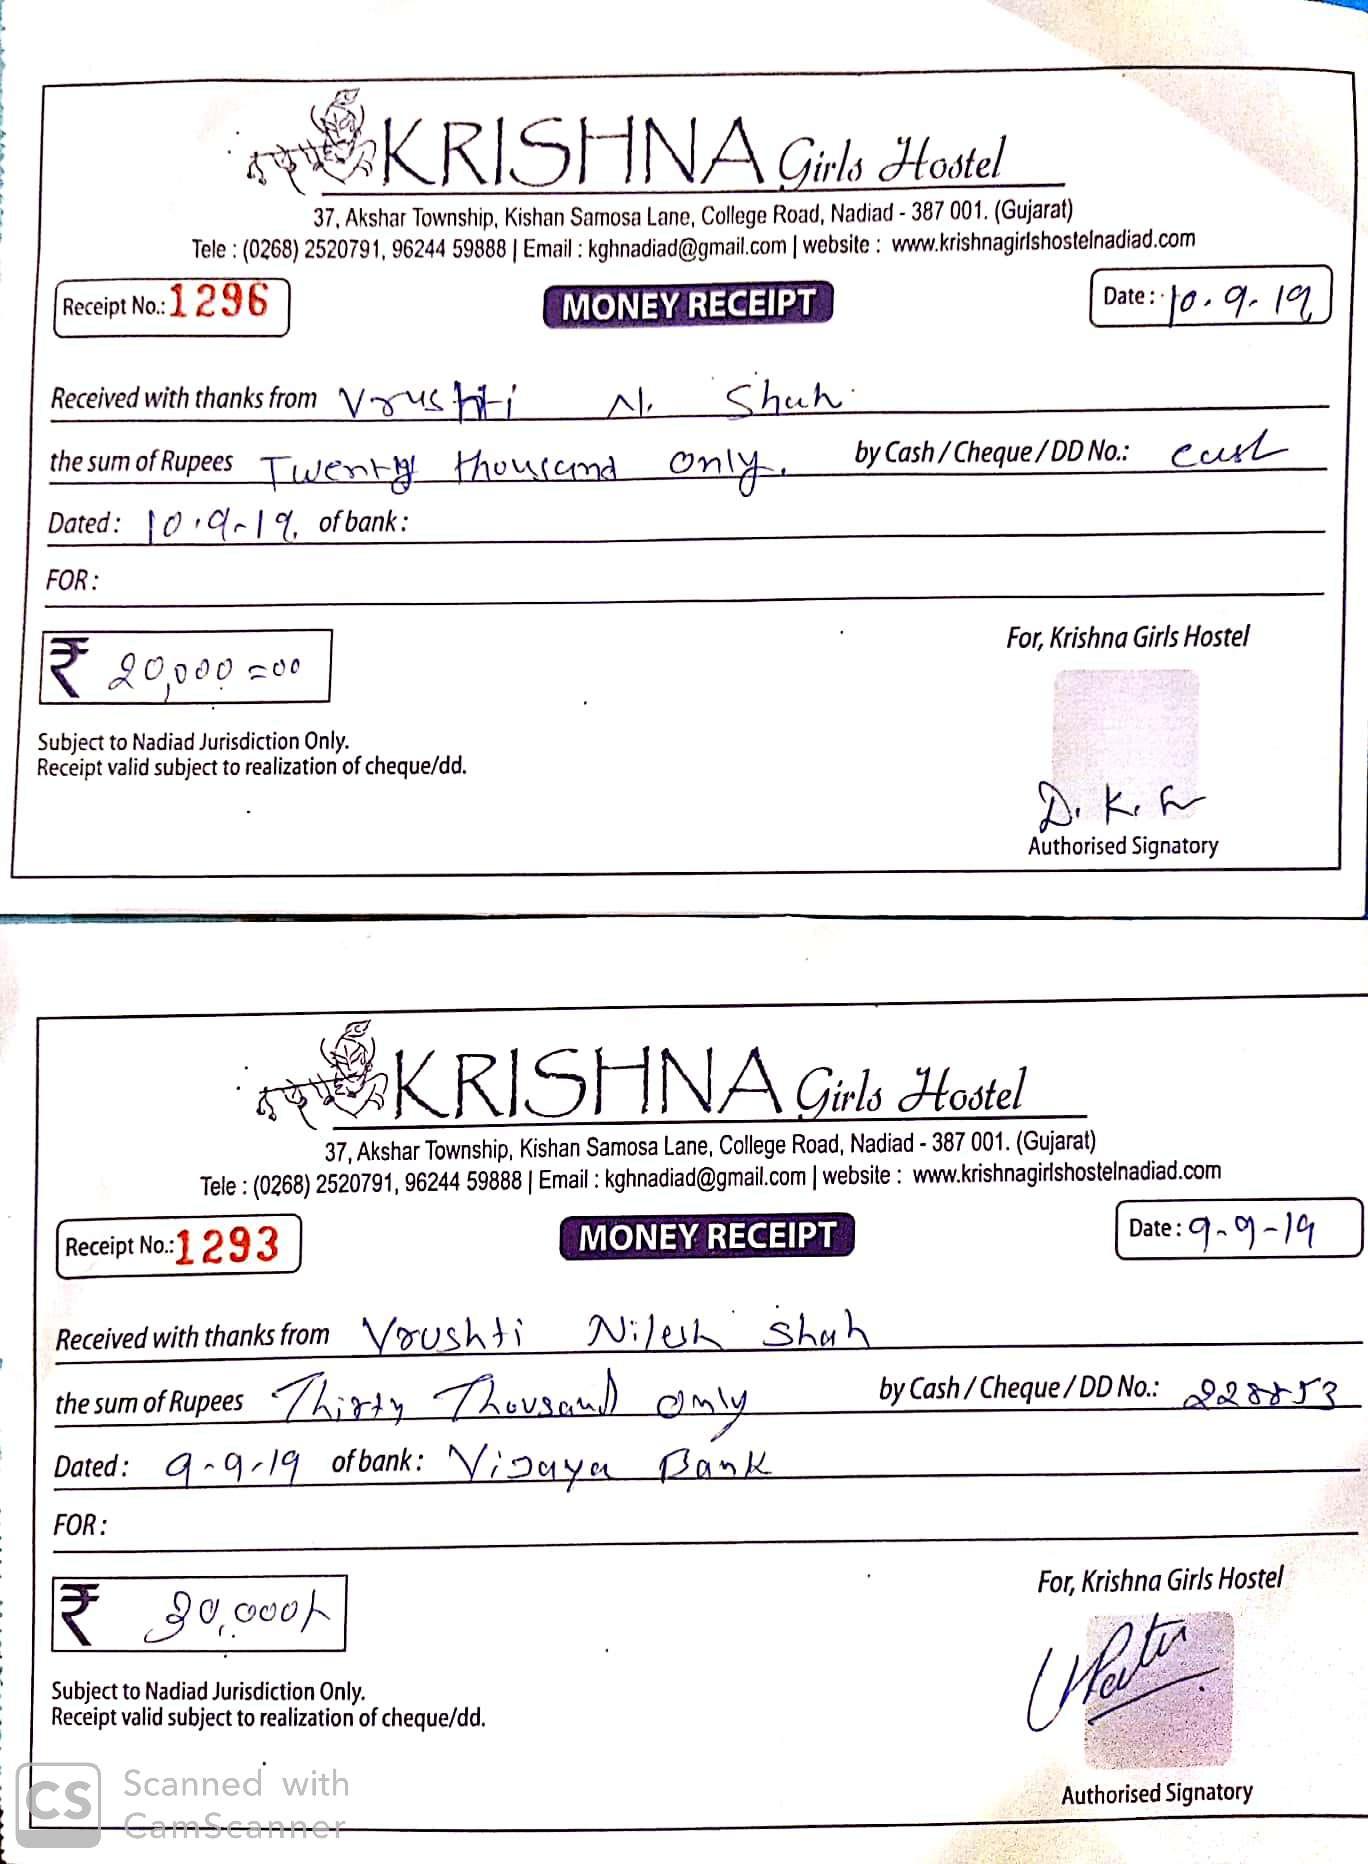 KRISHNA Girls Hostel
37, Akshar Township, Kishan Samosa Lane, College Road, Nadiad - 387 001. (Gujarat)
Tele : (0268) 2520791, 96244 59888 | Email : kghnadiad@gmail.com | website : www.krishnagirlshostelnadiad.com
Receipt No.: 1296 MONEY RECEIPT Date : 10.9.19
Received with thanks from Vrushti N. Shah
the sum of Rupees Twenty thousand only. by Cash / Cheque / DD No.: cash
Dated : 10.9-19. of bank :
FOR :
₹ 20,000=00
For, Krishna Girls Hostel
Subject to Nadiad Jurisdiction Only.
Receipt valid subject to realization of cheque/dd.
D. K.
Authorised Signatory
KRISHNA Girls Hostel
37, Akshar Township, Kishan Samosa Lane, College Road, Nadiad - 387 001. (Gujarat)
Tele : (0268) 2520791, 96244 59888 | Email : kghnadiad@gmail.com | website : www.krishnagirlshostelnadiad.com
Receipt No.: 1293 MONEY RECEIPT Date : 9-9-19
Received with thanks from Vrushti Nilesh Shah
the sum of Rupees Thirty Thousand only by Cash / Cheque / DD No.: 228853
Dated : 9-9-19 of bank : Vijaya Bank
FOR :
₹ 30,000/-
For, Krishna Girls Hostel
Subject to Nadiad Jurisdiction Only.
Receipt valid subject to realization of cheque/dd.
Authorised Signatory
CS Scanned with
CamScanner